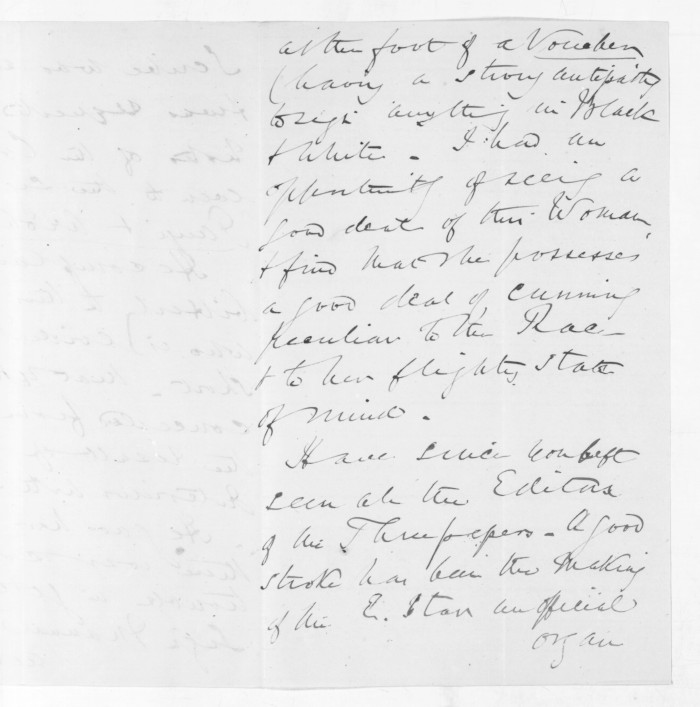 at the foot of a Voucher
(having a strong antipathy
to sign anything in Black
& White - I had an
opportunity of seeing a
good deal of this Woman,
& find that she possesses
a good deal of cunning
peculiar to the Race -
& to her flighty state
of mind -
Have since you left
seen all the Editors
of the Three papers - A good
stroke has been the making
of the E. Star an official
organ